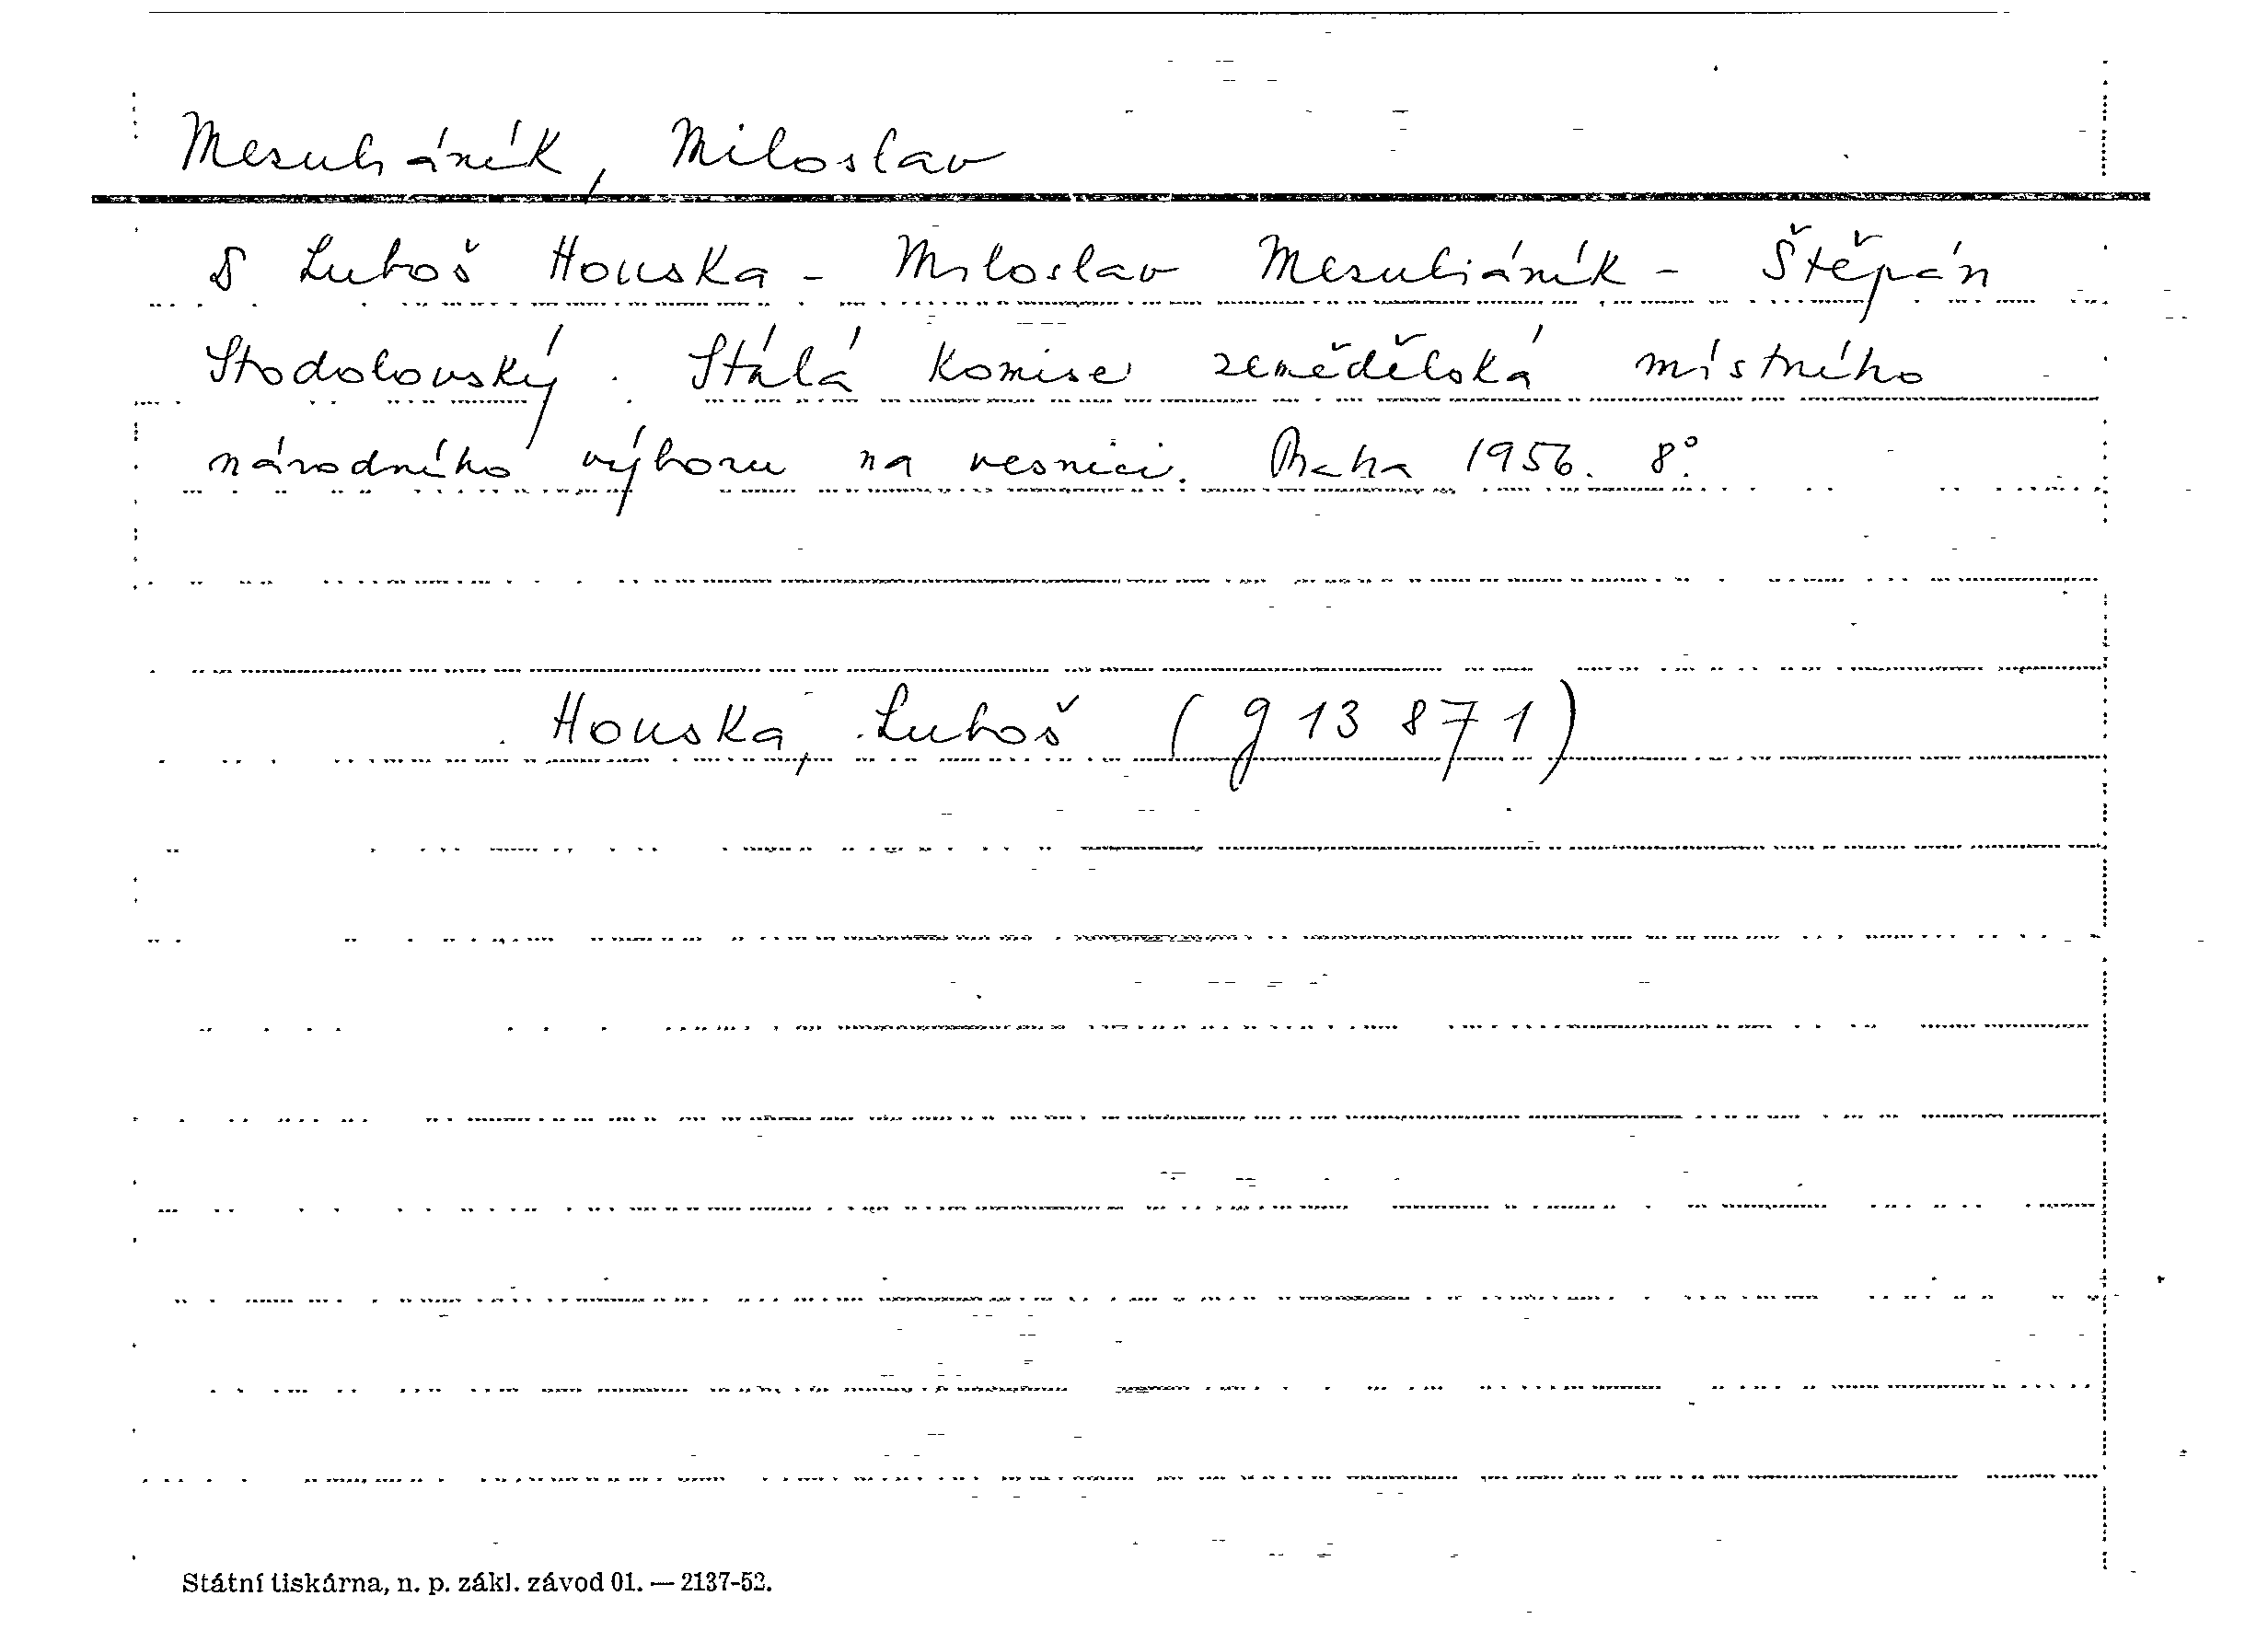 Mesuliáník, Miloslav
S Luboš Houska - Miloslav Mesuliáník - Štěpán
Stodolovský. Stálá komise zemědělská místního
národního výboru na vesnici. Praha 1956. 8°.
Houska, Luboš (g 13 871)
Státní tiskárna, n. p. zákl. závod 01. — 2137-52.